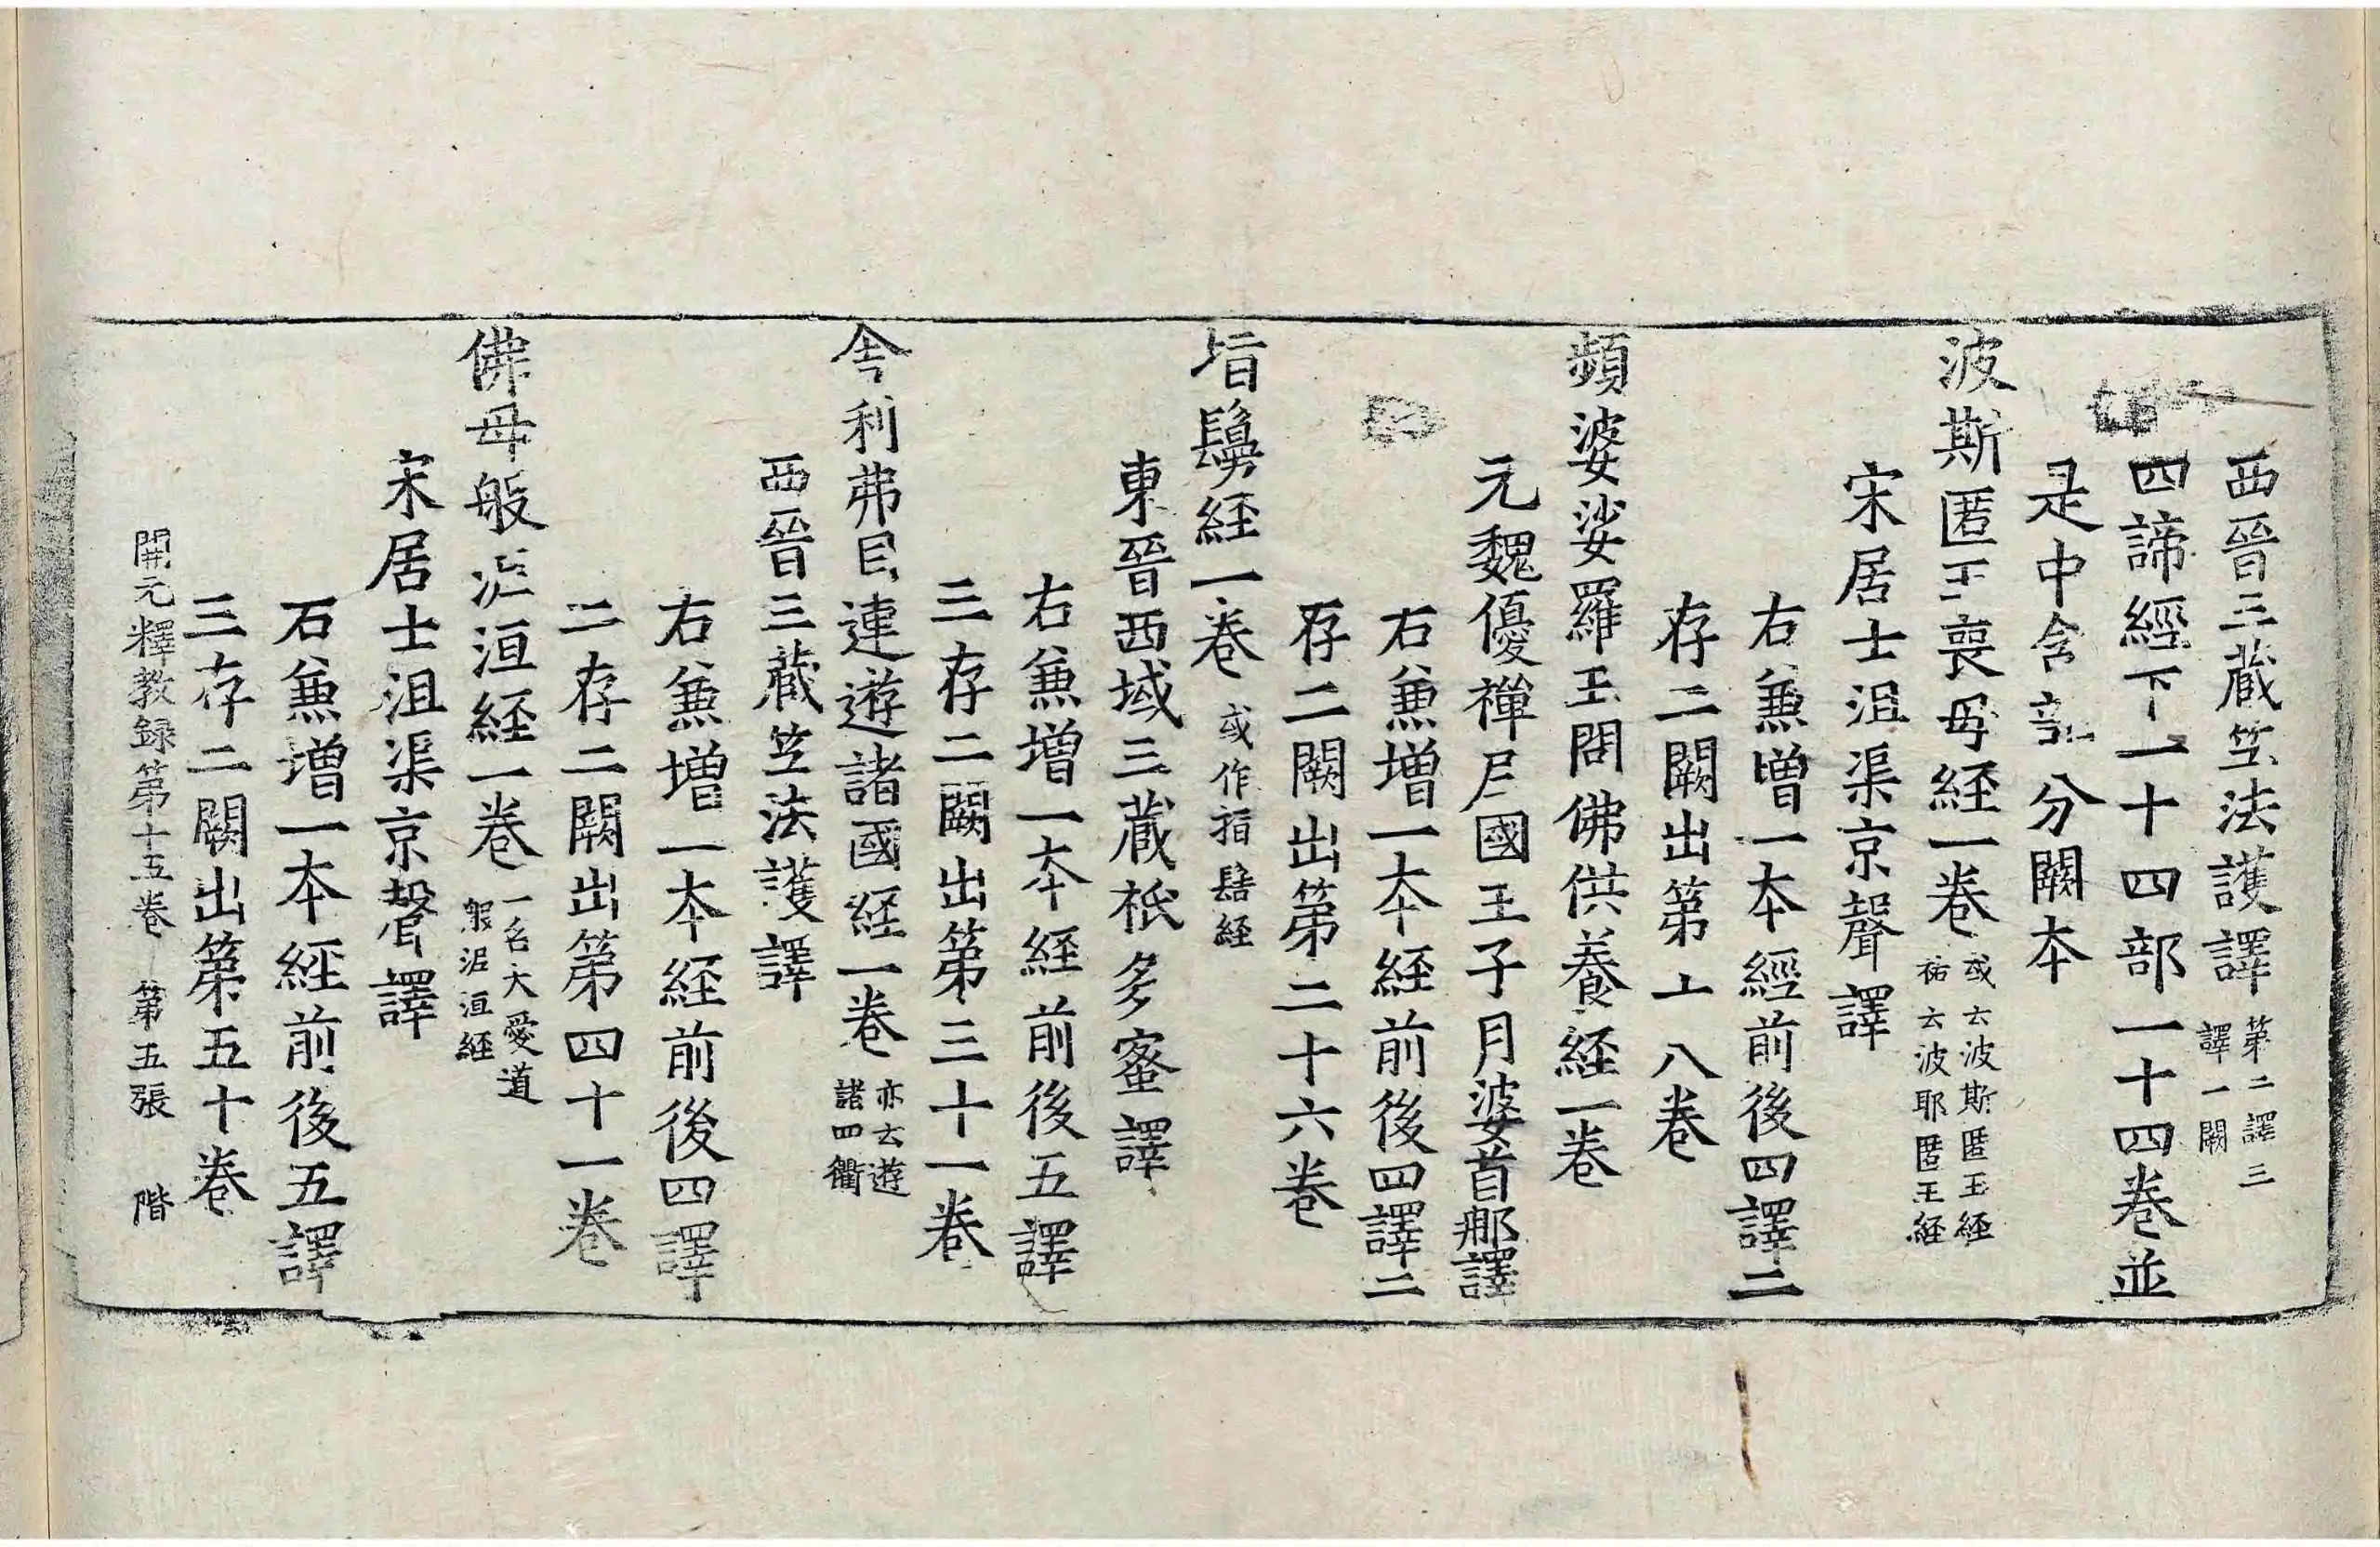 西晉三藏竺法護譯第二譯三譯一闕
四諦經下一十四部一十四卷並
是中含部分闕本
波斯匿王喪母経一卷或云波斯匿王経祐云波耶匿王経
宋居士沮渠京聲譯
右兼増一本經前後四譯二
存二闕出第十八卷
頻婆娑羅王問佛供養経一卷
元魏優禪尼國王子月婆首那譯
右兼増一本経前後四譯二
存二闕出第二十六卷
指鬘経一卷或作指髻経
東晉西域三藏祇多蜜譯
右兼増一本経前後五譯
三存二闕出第三十一卷
舍利弗目連遊諸國経一卷亦云遊諸四衢
西晉三藏竺法護譯
右兼増一本経前後四譯
二存二闕出第四十一卷
佛母般泥洹経一卷一名大愛道般泥洹経
宋居士沮渠京聲譯
右兼増一本経前後五譯
三存二闕出第五十卷
開元釋教録第十五卷 第五張 階